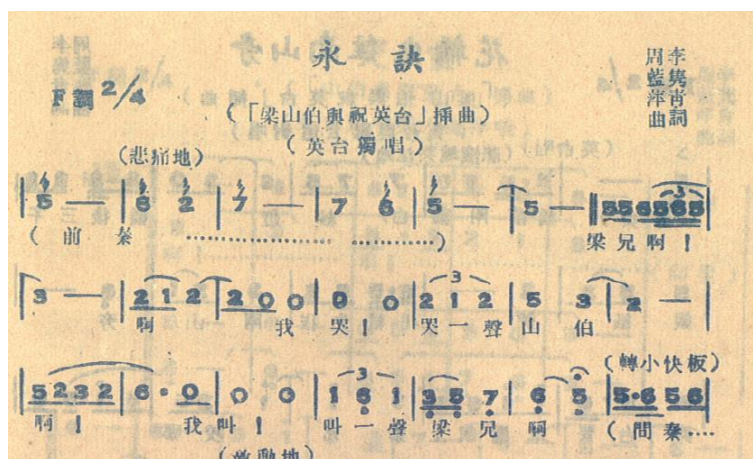 永訣
李雋青詞
周藍萍曲
F調 2/4
(「梁山伯與祝英台」插曲)
(英台獨唱)
(悲痛地)
5 — | 6 2 | 7 — | 7 6 | 5 — | 5 — ‖ 5 5 6 5 5 6 5
(前奏 ………………… ……………) 梁兄啊!
3 — | 2 1 2 | 2 0 0 | 0 0 | 2 1 2 | 5 3 | 2 — |
啊 我哭! 哭一聲山伯
(轉小快板)
5 2 3 2 | 6 · 0 | 0 0 | 1 6 1 | 3 5 7 | 6 5 | 5 · 6 5 6
啊! 我叫! 叫一聲梁兄啊 (間奏‥‥
(激動地)